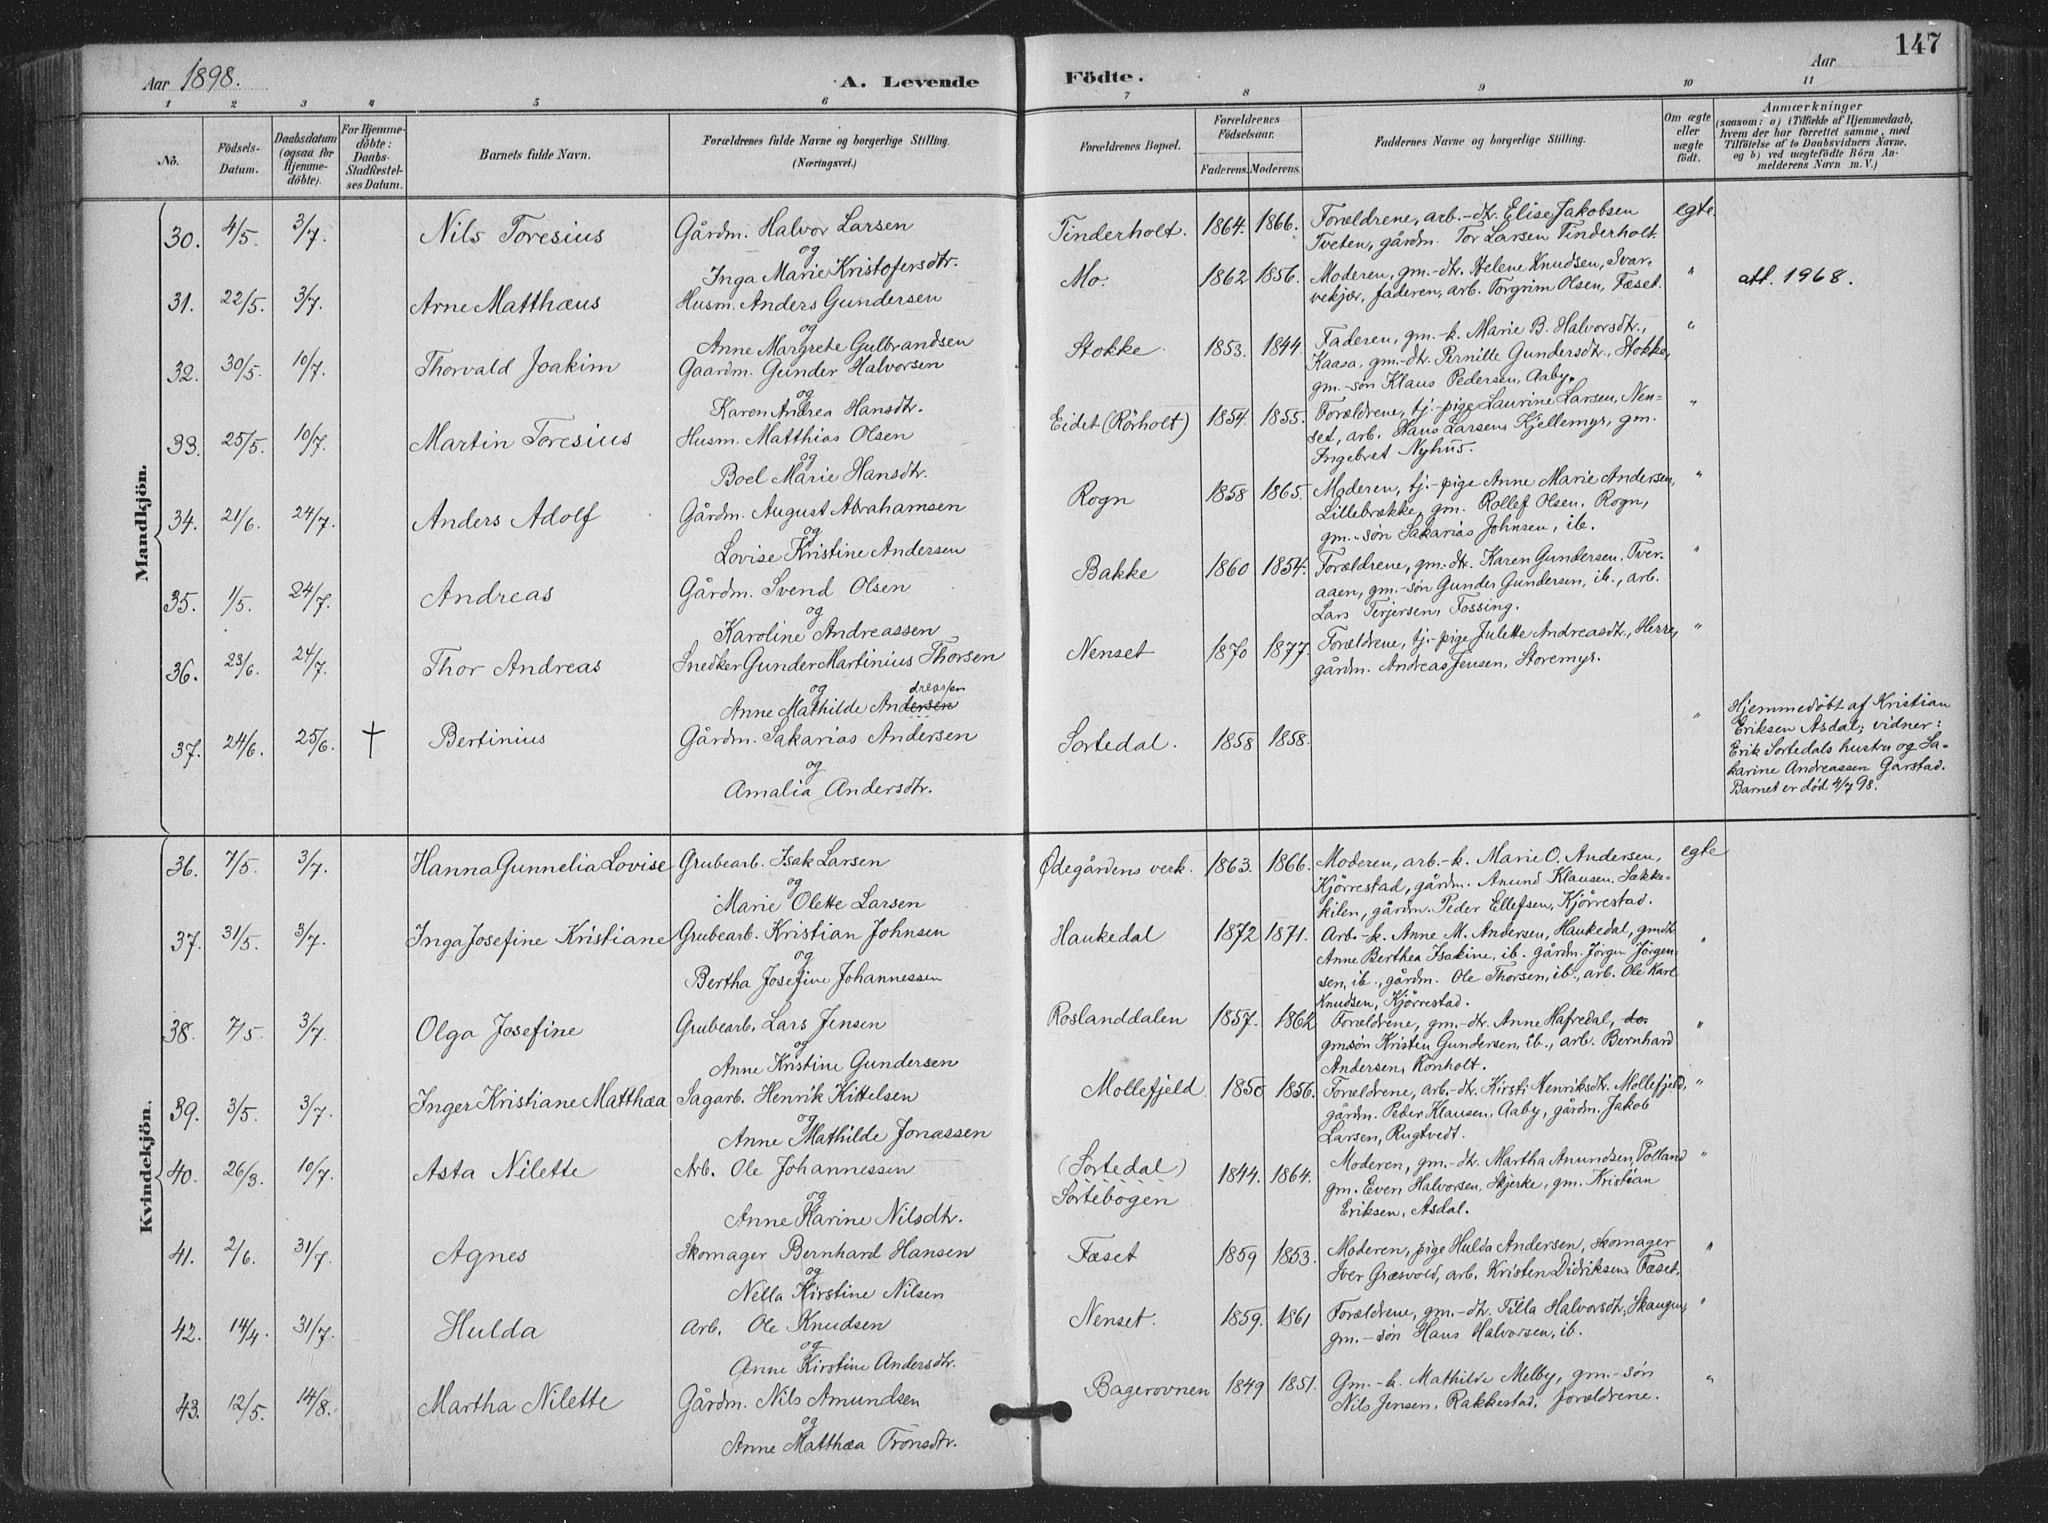 147
Aar 1898.
A. Levende Födte.
Aar
1 2 3 4 5 6 7 8 9 10 11
No.
Födsels-Datum.
Daabsdatum (ogsaa for Hjemme-döbte).
For Hjemme-döbte: Daabs-Stadfæstel-ses Datum.
Barnets fulde Navn.
Forældrenes fulde Navne og borgerlige Stilling. (Næringsvei.)
Forældrenes Bopæl.
Forældrenes Födselsaar.
Faderens. Moderens.
Faddernes Navne og borgerlige Stilling.
Om ægte eller uægte födt.
Anmærkninger
(saasom: a) i Tilfælde af Hjemmedaab, hvem der har forrettet samme, med Tilföielse af to Daabsvidners Navne, og b) ved uægtefödte Börn An-melderens Navn m. V.)
Mandkjön.
30. 4/5. 3/7. Nils Toresius
Gårdm. Halvor Larsen
og
Inga Marie Kristofersdtr.
Tinderholt. 1864. 1866.
Forældrene, arb.-dtr. Elise Jakobsen
Tveten, gårdm. Tor Larsen Tinderholt.
egte.
31. 22/5. 3/7. Arne Matthæus
Husm. Anders Gundersen
og
Anne Margrete Gulbrandsen
Mo. 1862 1856.
Moderen, gm.-dtr. Helene Knudsen, Svar-
vekjær, faderen, arb. Torgrim Olsen, Fæset.
"
att. 1968.
32. 30/5. 10/7. Thorvald Joakim
Gaardm. Gunder Halvorsen
og
Karen Andrea Hansdtr.
Stokke 1853. 1844.
Faderen, gm.-k. Marie B. Halvorsdtr.,
Kaasa, gm.-dtr. Pernille Gundersdtr., Stokke,
gm.-søn Klaus Pedersen, Aaby.
"
33. 25/5. 10/7. Martin Toresius
Husm. Matthias Olsen
og
Boel Marie Hansdtr.
Eidet (Rörholt) 1854. 1855.
Forældrene, tj.-pige Laurine Larsen, Nen-
set, arb. Hans Larsen, Kjellemyr, gm.
Ingebret Nyhus.
"
34. 21/6. 24/7. Anders Adolf
Gårdm. August Abrahamsen
og
Lovise Kristine Andersen
Rogn 1858 1865.
Moderen, tj.-pige Anne Marie Andersen,
Lillebrække, gm. Rollef Olsen, Rogn,
gm.-søn Sakarias Johnsen, ib.
"
35. 1/5. 24/7. Andreas
Gårdm. Svend Olsen
og
Karoline Andreassen
Bakke 1860 1854.
Forældrene, gm.-dtr. Karen Gundersen. Tver-
aaen, gm.-søn Gunder Gundersen, ib., arb.
Lars Terjersen, Fossing.
"
36. 23/6. 24/7. Thor Andreas
Snedker Gunder Martinius Thorsen
og
dreassen
Anne Mathilde Andersen
Nenset 1870 1877.
Forældrene, tj.-pige Julette Andreasdt., Herre,
gårdm. Andreas Jensen, Storemyr.
"
37. 24/6. 25/6. † Bertinius
Gårdm. Sakarias Andersen
og
Amalia Andersdtr.
Sortedal. 1858 1858.
"
Hjemmedøbt af Kristian
Eriksen Asdal, vidner:
Erik Sortedals hustru og Sa-
karine Andreassen Garstad.
Barnet er död 4/7 98.
Kvindekjön.
36. 7/5. 3/7. Hanna Gunnelia Lovise
Grubearb. Isak Larsen
og
Marie Olette Larsen
Ødegårdens verk. 1863. 1866.
Moderen, arb.-k. Marie O. Andersen,
Kjörrestad, gårdm. Anund Klausen, Sække-
kilen, gårdm. Peder Ellefsen, Kjörrestad.
egte
37. 31/5. 3/7. Inga Josefine Kristiane
Grubearb. Kristian Johnsen
og
Bertha Josefine Johannessen
Haukedal 1872 1871.
Arb.-k. Anne M. Andersen, Haukedal, gmdtr.
Anne Berthea Isakine, ib. gårdm. Jörgen Jörgen-
sen, ib., gårdm. Ole Thorsen, ib., arb. Ole Karl
Knudsen, Kjörrestad.
"
38. 7/5. 3/7. Olga Josefine
Grubearb. Lars Jensen
og
Anne Kristine Gundersen
Roslanddalen 1857. 1862
Forældrene, gm.-dtr. Anne Hafredal, do.
gmsøn Kristen Gundersen, ib., arb. Bernhard
Andersen, Rönholt.
"
39. 3/5. 3/7. Inger Kristiane Matthæa
Sagarb. Henrik Kittelsen
og
Anne Mathilde Jonassen
Mollefjeld 1850 1856.
Forældrene, arb.-dtr. Kirsti Henriksdtr. Mollefjeld,
gårdm. Peder Klausen, Aaby, gårdm. Jakob
Larsen, Rugtvedt.
"
40. 26/3. 10/7. Asta Nilette
Arb. Ole Johannessen
og
Anne Karine Nilsdtr.
(Sortedal)
Sortebogen 1844. 1864.
Moderen, gm.-dtr. Martha Anundsen, Rolland
gm. Even Halvorsen, Skjerke, gm. Kristian
Eriksen, Asdal.
"
41. 2/6. 31/7. Agnes
Skomager Bernhard Hansen
og
Nella Kirstine Nilsen
Fæset 1859 1853.
Moderen, pige Hulda Andersen, skomager
Iver Græsvold, arb. Kristen Didriksen, Fæset.
"
42. 14/4. 31/7. Hulda
Arb. Ole Knudsen
og
Anne Kirstine Andersdtr.
Nenset. 1859. 1861
Forældrene, gm.-dtr. Tilla Halvorsdtr, Skaugen,
gm.-søn Hans Halvorsen, ib.
"
43. 12/5. 14/8. Martha Nilette
Gårdm. Nils Amundsen
og
Anne Matthæa Tronsdtr.
Bagerovnen 1849 1851.
Gm.-k. Mathilde Melby, gm.-søn
Nils Jensen, Rakkestad, forældrene.
"